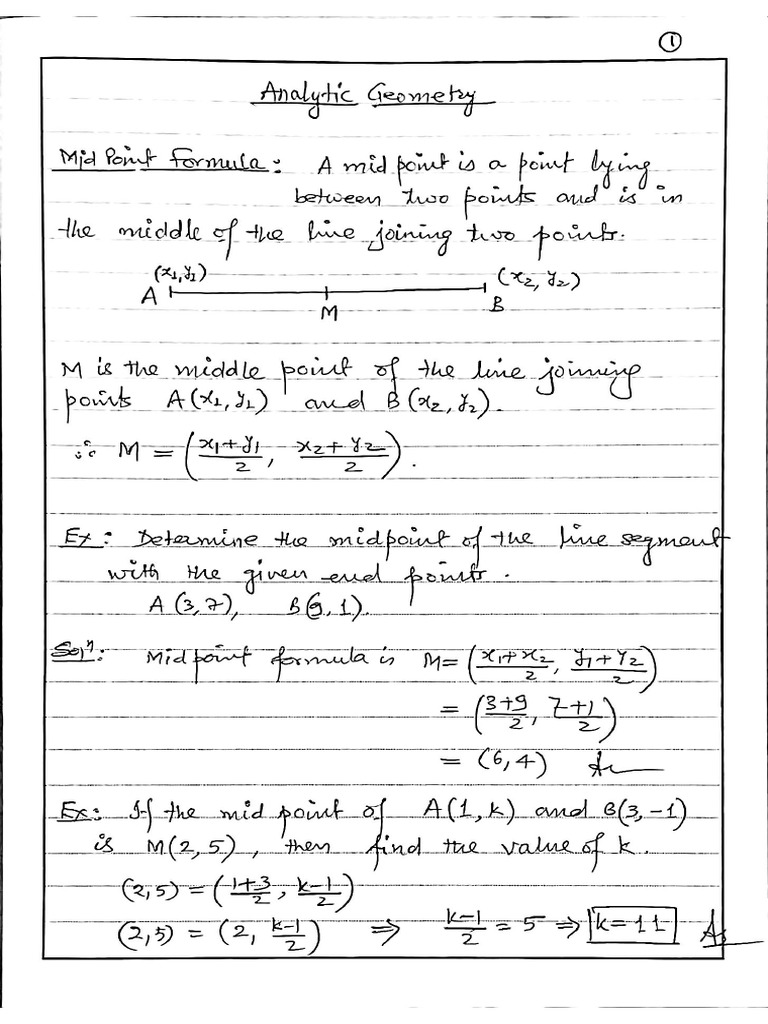 ①
Analytic Geometry
Mid Point Formula: A mid point is a point lying
between two points and is in
the middle of the line joining two points.
(x₁, y₁) (x₂, y₂)
A M B
M is the middle point of the line joining
points A(x₁, y₁) and B(x₂, y₂).
∴ M = ((x₁+y₁)/2, (x₂+y₂)/2).
Ex: Determine the midpoint of the line segment
with the given end points.
A (3, 7), B(9, 1).
Solⁿ: Midpoint formula is M = ((x₁+x₂)/2, (y₁+y₂)/2)
= ((3+9)/2, (7+1)/2)
= (6, 4)
Ex: If the mid point of A(1, k) and B(3, -1)
is M(2, 5), then find the value of k.
(2, 5) = ((1+3)/2, (k-1)/2)
(2, 5) = (2, (k-1)/2) ⇒ (k-1)/2 = 5 ⇒ k = 11